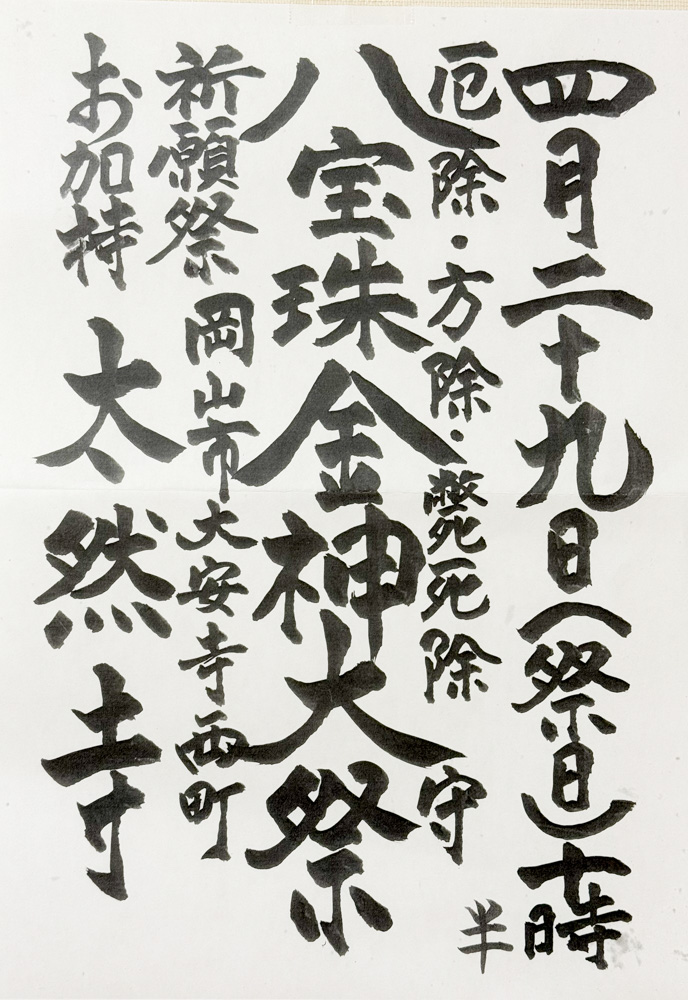 四月二十九日(祭日)十時半
厄除・方除・斃死除 守
八宝珠金神大祭
祈願祭 岡山市大安寺西町
お加持 太然寺